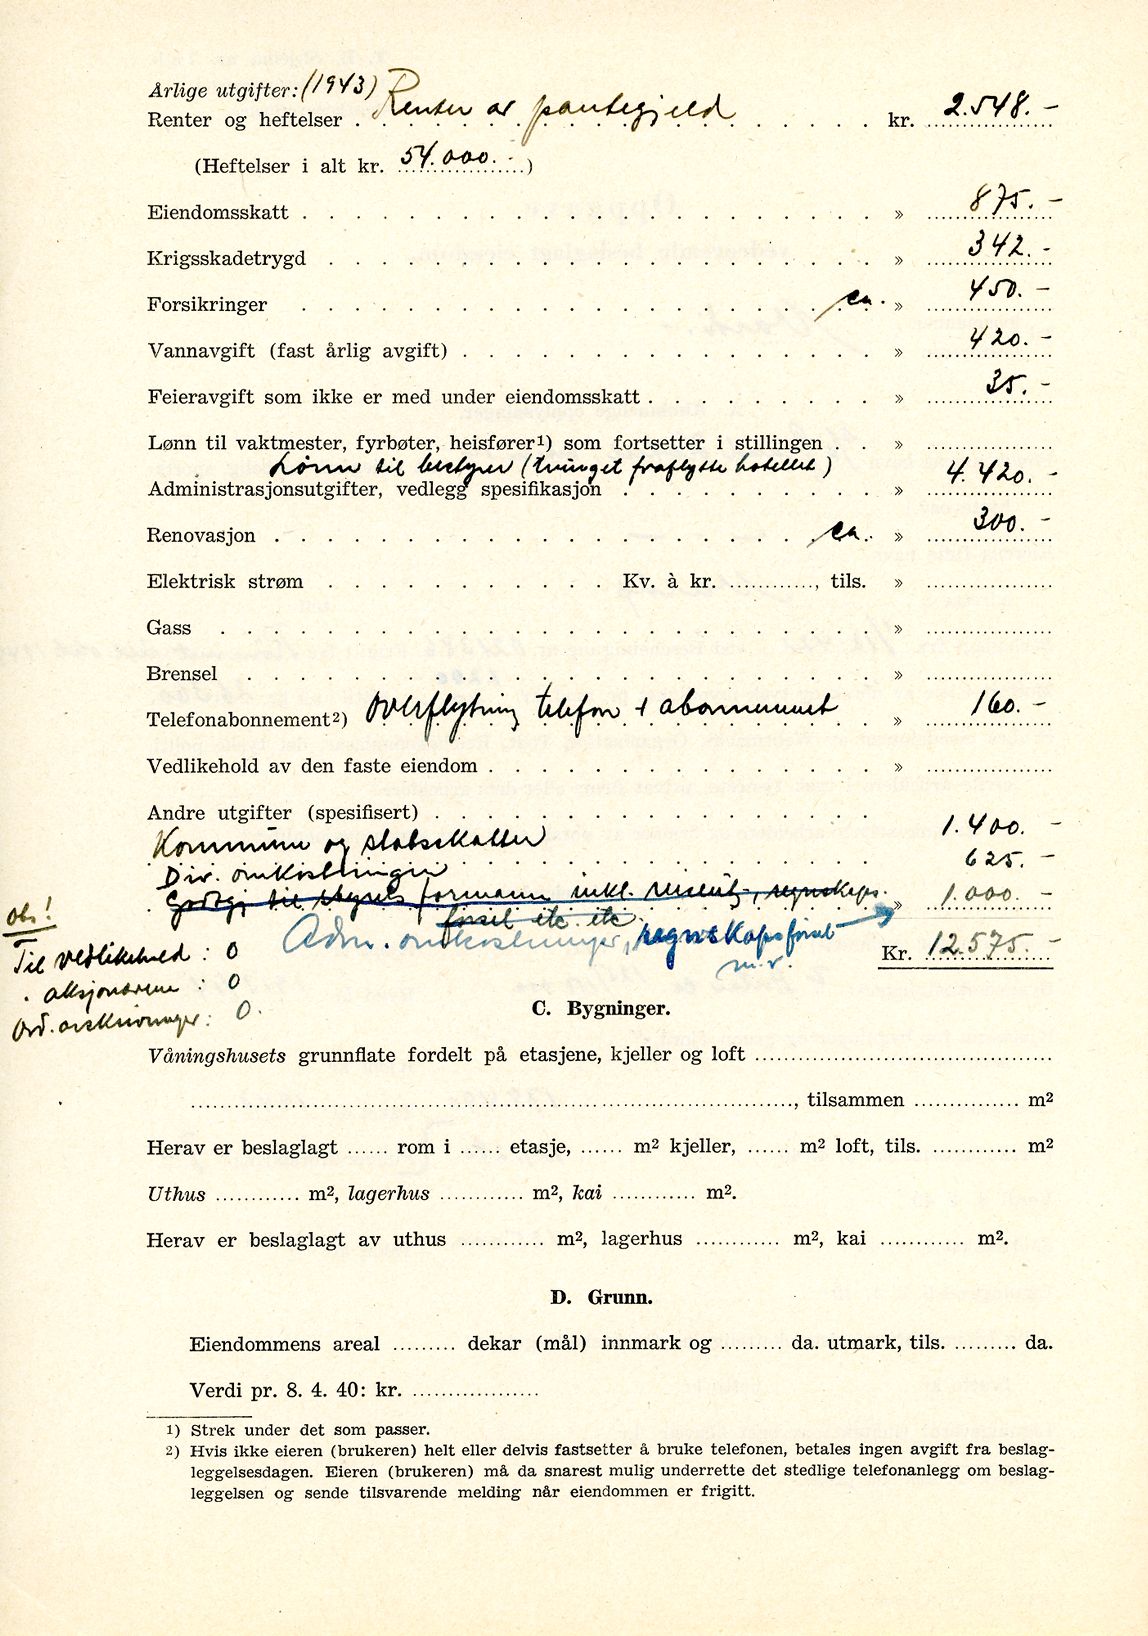 Årlige utgifter: (1943)
Renter og heftelser . Renter av pantegjeld kr. 2.548.-
(Heftelser i alt kr. 54.000.- )
Eiendomsskatt » 875.-
Krigsskadetrygd » 342.-
Forsikringer ca. » 450.-
Vannavgift (fast årlig avgift) » 420.-
Feieravgift som ikke er med under eiendomsskatt » 35.-
Lønn til vaktmester, fyrbøter, heisfører1) som fortsetter i stillingen »
Lønn til bestyrer (tvunget fraflytte hotellet)
Administrasjonsutgifter, vedlegg spesifikasjon » 4.420.-
Renovasjon ca. » 300.-
Elektrisk strøm Kv. à kr. ............, tils. »
Gass »
Brensel »
Telefonabonnement2) Overflytning telefon + abonnement » 160.-
Vedlikehold av den faste eiendom »
Andre utgifter (spesifisert)
Kommune og statsskatter 1.400.-
Div. omkostninger 625.-
Godtgj. til styrets formann inkl. reiseutg., regnskaps- » 1.000.-
førsel etc. etc.
Adm. omkostninger, regnskapsførsel
m.v.
Kr. 12.575.-
Obs!
Til vedlikehold : 0
" aksjonærene : 0
Ord. avskrivninger : 0.
C. Bygninger.
Våningshusets grunnflate fordelt på etasjene, kjeller og loft
, tilsammen ............... m2
Herav er beslaglagt ...... rom i ...... etasje, ...... m2 kjeller, ...... m2 loft, tils. ............ m2
Uthus ............ m2, lagerhus ............ m2, kai ............ m2.
Herav er beslaglagt av uthus ............ m2, lagerhus ............ m2, kai ............ m2.
D. Grunn.
Eiendommens areal ......... dekar (mål) innmark og ......... da. utmark, tils. ......... da.
Verdi pr. 8. 4. 40: kr. ..................
1) Strek under det som passer.
2) Hvis ikke eieren (brukeren) helt eller delvis fastsetter å bruke telefonen, betales ingen avgift fra beslag-
leggelsesdagen. Eieren (brukeren) må da snarest mulig underrette det stedlige telefonanlegg om beslag-
leggelsen og sende tilsvarende melding når eiendommen er frigitt.